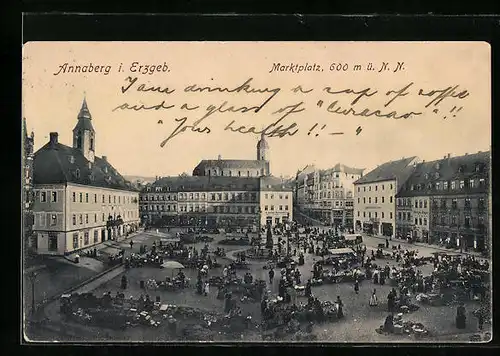 Annaberg i. Erzgeb.
Marktplatz, 600 m ü. N. N.
I am drinking a cup of coffee
and a glass of "Curacao"!!
"Your health!! –"